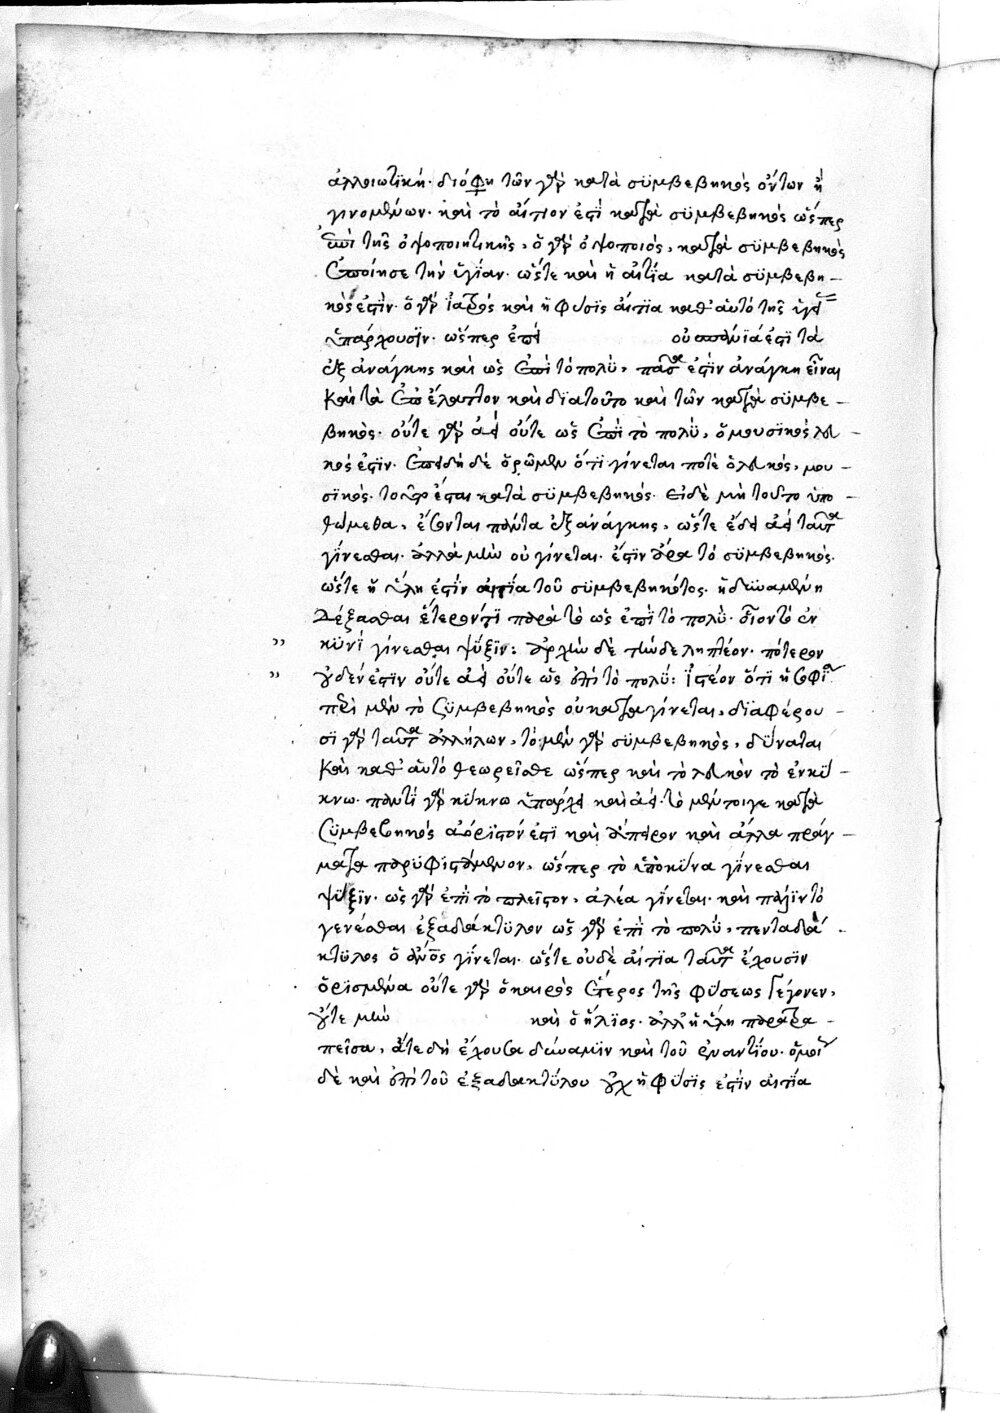 ἀλλοιωτικὴ· διό φη τῶν γὰρ κατὰ συμβεβηκὸς ὄντων ἢ
γινομένων· καὶ τὸ αἴτιον ἐστὶ κατὰ συμβεβηκὸς ὥσπερ
ἐπὶ τῆς ὀψοποιητικῆς, ὁ γὰρ ὀψοποιὸς, κατὰ συμβεβηκὸς
ἐποίησε τὴν ὑγίαν· ὥστε καὶ ἡ αἰτία κατὰ συμβεβη-
κὸς ἐστὶν· ὁ γὰρ ἰατρὸς καὶ ἡ φύσις αἰτία καθ' αὑτὸ τῆς
ὑπάρχουσιν· ὥσπερ ἐπεὶ οὐ πάντα ἐστὶ τὰ
ἐξ ἀνάγκης καὶ ὡς ἐπὶ τὸ πολὺ, ἐστὶν ἀνάγκη εἶναι
καὶ τὰ ἐπ' ἔλαττον καὶ διατοῦτο καὶ τῶν κατὰ συμβε-
βηκὸς· οὔτε γὰρ ἀεὶ οὔτε ὡς ἐπὶ τὸ πολὺ, ὁ μουσικὸς λευ-
κός ἐστιν· ἐπειδὴ δὲ ὁρῶμεν ὅτι γίνεται ποτὲ ὁ λευκὸς, μου-
σικὸς· τοῦτο ἔσται κατὰ συμβεβηκὸς· εἰ δὲ μὴ τοῦτο ὑπο-
θώμεθα, ἔσονται πάντα ἐξ ἀνάγκης, ὥστε ἔδει ἀεὶ ταῦτα
γίνεσθαι· ἀλλὰ μὴν οὐ γίνεται· ἔστιν ἄρα τὸ συμβεβηκὸς·
ὥστε ἡ ὕλη ἐστὶν αἰτία τοῦ συμβεβηκότος· ἡ δυναμένη
δέξασθαι ἕτερόν τι παρὰ τὸ ὡς ἐπὶ τὸ πολὺ· οἷον τὸ ἐν
κυνὶ γίνεσθαι ψύξιν: ἀρχὴν δὲ τήνδε ληπτέον· πότερον
οὐδέν ἐστιν οὔτε ἀεὶ οὔτε ὡς ἐπὶ τὸ πολὺ: ἰστέον ὅτι ἡ σοφι
περὶ μὲν τὸ συμβεβηκὸς οὐ κατα γίνεται, διαφέρου
σι γὰρ ταῦτα ἀλλήλων, τὸ μὲν γὰρ συμβεβηκὸς, δύναται
καὶ καθ' αὑτὸ θεωρεῖσθε ὥσπερ καὶ τὸ λευκὸν τὸ ἐν κύ-
κνω· παντὶ γὰρ κύκνω ὑπάρχει καὶ ἀεὶ· τὸ μέντοιγε κατὰ
συμβεβηκὸς ἀόριστόν ἐστι καὶ ἄπειρον καὶ ἄλλα πράγ-
ματα παρυφιστάμενον, ὥσπερ τὸ ὑπὸ κύνα γίνεσθαι
ψύξιν· ὡς γὰρ ἐπὶ τὸ πλεῖστον, ἀλέα γίνεται· καὶ πάλιν τὸ
γενέσθαι ἑξαδάκτυλον ὡς γὰρ ἐπὶ τὸ πολὺ, πενταδά
κτυλος ὁ ἄνος γίνεται· ὥστε οὐδὲ αἰτία ταῦτα ἔχουσιν
ὁρισμένα οὔτε γὰρ ὁ καιρὸς ἕτερος τῆς φύσεως γέγονεν,
οὔτε μὴν καὶ ὁ ἥλιος· ἀλλ' ἡ ὕλη παρατρα-
πεῖσα, ἅτε δὴ ἔχουσα δύναμιν καὶ τοῦ ἐναντίου· ὁμοί
δὲ καὶ ἐπὶ τοῦ ἑξαδακτύλου οὐχ ἡ φύσις ἐστὶν αἰτία